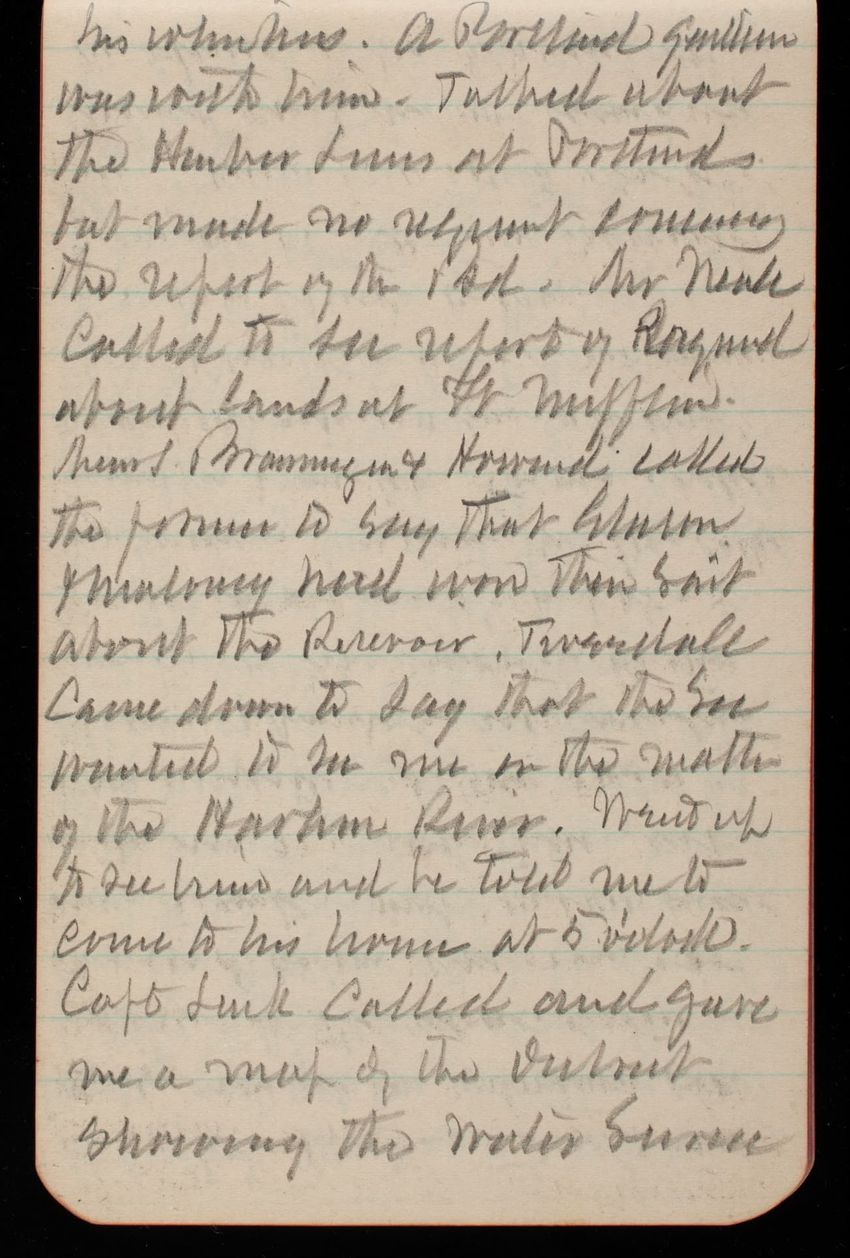 his whiskers. A Portland gentlem
was with him. Talked about
the Harbor Lines at Portland
but made no request concerning
the report of the Bd. Mr Neale
Called to see report of Raymond
about lands at Ft Mifflin.
Mess Brannigan & Howard called
the former to say that Gleason
& Maloney had won their Suit
about the Reservoir. Truesdell
Came down to say that the Sec
wanted to see me on the matter
of the Harlem River. Went up
to see him and he told me to
come to his home at 5 o'clock.
Capt Lusk Called and gave
me a map of the District
Showing the Water Service